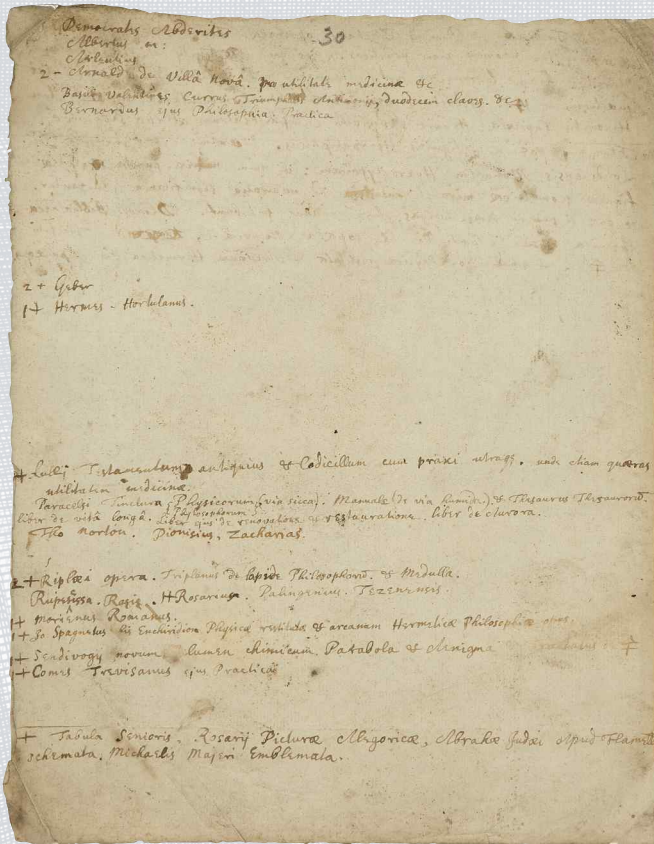 30
Democrates Abderites
Albertus
Arlentius
2 - Arnald de Villâ Novâ. pro utilitate medicinæ &c
Basil Valentines Currus Triumph Antimony, duodecim claves. &c
Bernardus ejus Philosophia Practica
2 + Geber
1+ Hermes - Hortulanus.
+ Lullij Testamentum antiquius & Codicillum cum praxi utraq. unde etiam quæras
utilitatem medicinæ.
Paracelsi Tinctura Physicorum (via sicca). Manuale (de via humida) & Thesaurus Thesaurorū.
Philosophorum
liber de vitâ longâ. liber ejus de renovatione & restauratione. liber de Aurora.
Tho Norton. Dionisius, Zacharias.
2 + Riplæi opera. Triplanus de lapide Philosophorū. & Medulla.
Rupescissa. Rosis. Rosareus. Palingenius. Tezenensis.
1+ Morienus Romanus.
1+ Jo Spagnetus his Enchiridion Physicæ restitutæ & arcanum Hermeticæ Philosophiæ opus.
1+ Sendivogy novum lumen chimicum. Parabola & Ænigma
1+ Comes Trevisanus ejus Practica
+ Tabula Senioris. Rosarij Picturæ Allegoricæ, Abrahæ Judæi apud Flamell
schemata. Michaelis Majeri Emblemata.